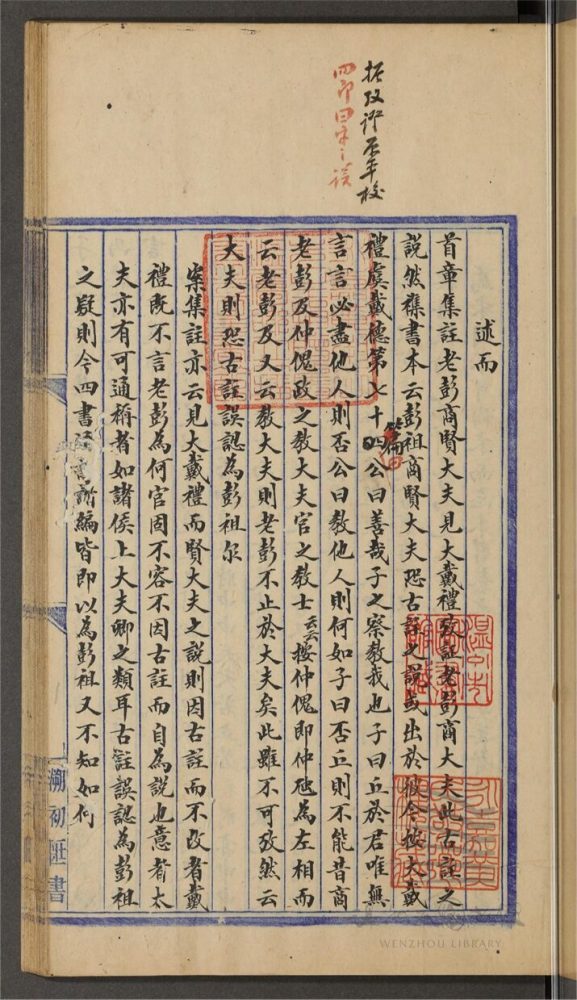 振玟謹 不年校
四郎曰宋之誤
述而
首章集註老彭商賢大夫見大戴禮攷証老彭商大夫此古註之
說然舊書本云彭祖商賢大夫恐古註之說或出於彼今按大戴
禮虞戴德第七十篇公曰善哉子之察教我也子曰丘於君唯無
言言必盡他人則否公曰教他人則何如子曰否丘則不能昔商
老彭及仲傀政之教大夫官之教士云云按仲傀即仲虺為左相而
云老彭及又云教大夫則老彭不止於大夫矣此雖不可攷然云
大夫則恐古註誤認為彭祖尔
案集註亦云見大戴禮而賢大夫之說則因古註而不改者戴
禮既不言老彭為何官固不容不因古註而自為說也意者太
夫亦有可通稱者如諸侯上大夫卿之類耳古註誤認為彭祖
之疑則今四書所編皆即以為彭祖又不知如何
溯初匪書
WENZHOU LIBRARY